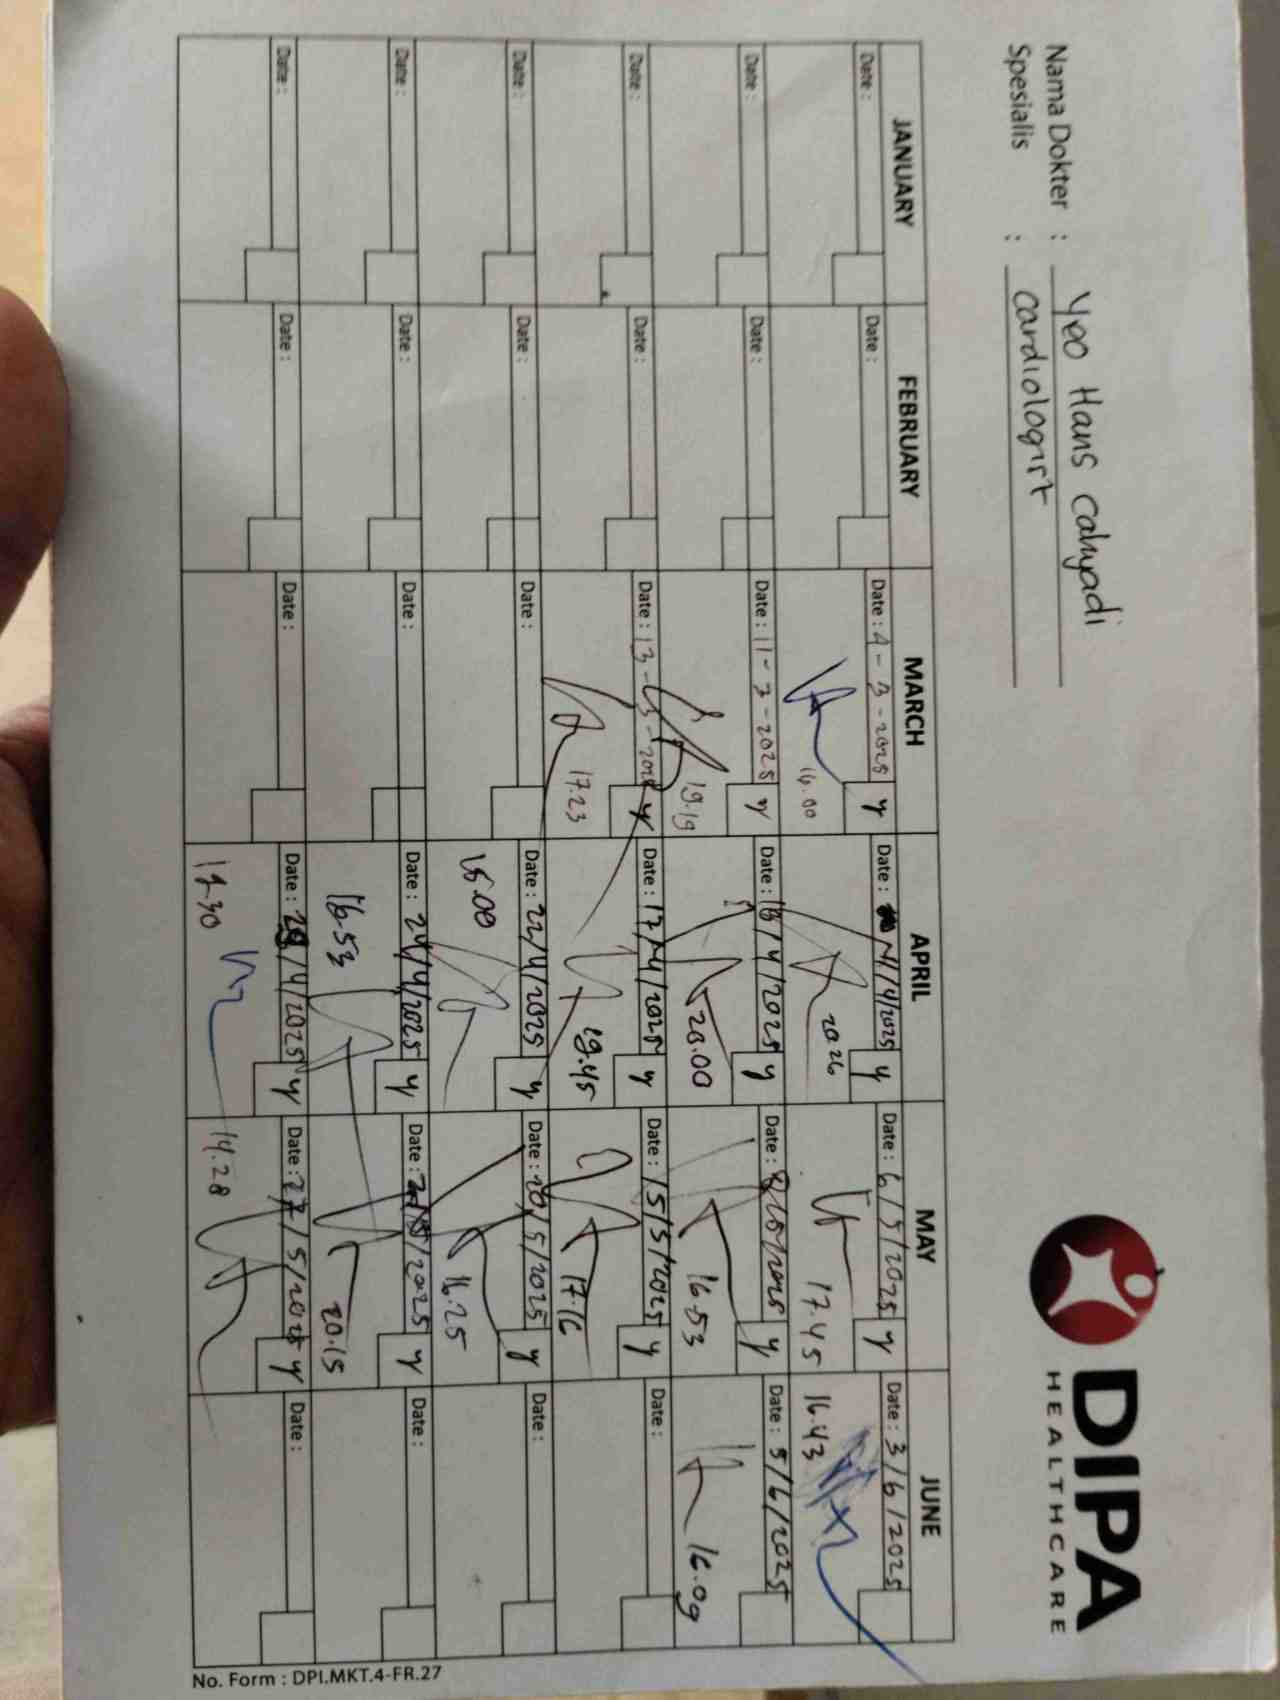 DIPA
HEALTHCARE
Nama Dokter : Yeo Hans Cahyadi
Spesialis : Cardiologist
JANUARY FEBRUARY MARCH APRIL MAY JUNE
Date : Date : Date : 4-3-2025 y Date : 11/4/2025 y Date : 6/5/2025 y Date : 3/6/2025
16.00 20.26 17.45 16.43
Date : Date : Date : 11-3-2025 y Date : 16/4/2025 y Date : 8/5/2025 y Date : 5/6/2025
19.19 20.00 16.53 16.09
Date : Date : Date : 13-3-2025 y Date : 17/4/2025 y Date : 15/5/2025 y Date :
17.23 19.45 17.16
Date : Date : Date : Date : 22/4/2025 y Date : 20/5/2025 y Date :
15.00 16.25
Date : Date : Date : Date : 24/4/2025 y Date : /2025 y Date :
16.53 20.15
Date : Date : Date : Date : 29/4/2025 y Date : 27/5/2025 y Date :
14.28
No. Form : DPI.MKT.4-FR.27